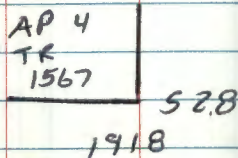 AP 4
TR
1567
52.8
1918